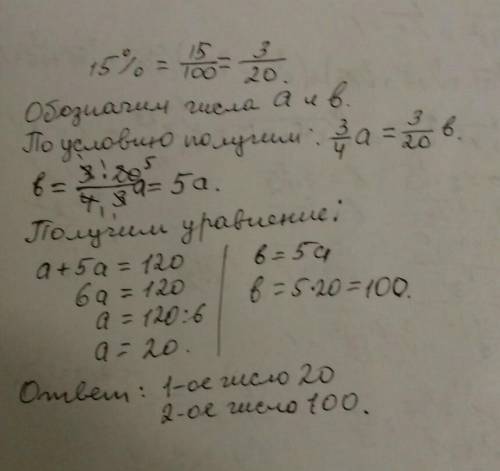 15% = 15/100 = 3/20.
Обозначим числа a и в.
По условию получим: 3/4 a = 3/20 в.
в = 3·20/4·3 a = 5a.
Получим уравнение:
a + 5a = 120
6a = 120
a = 120:6
a = 20.
в = 5a
в = 5·20 = 100.
Ответ: 1-ое число 20
2-ое число 100.